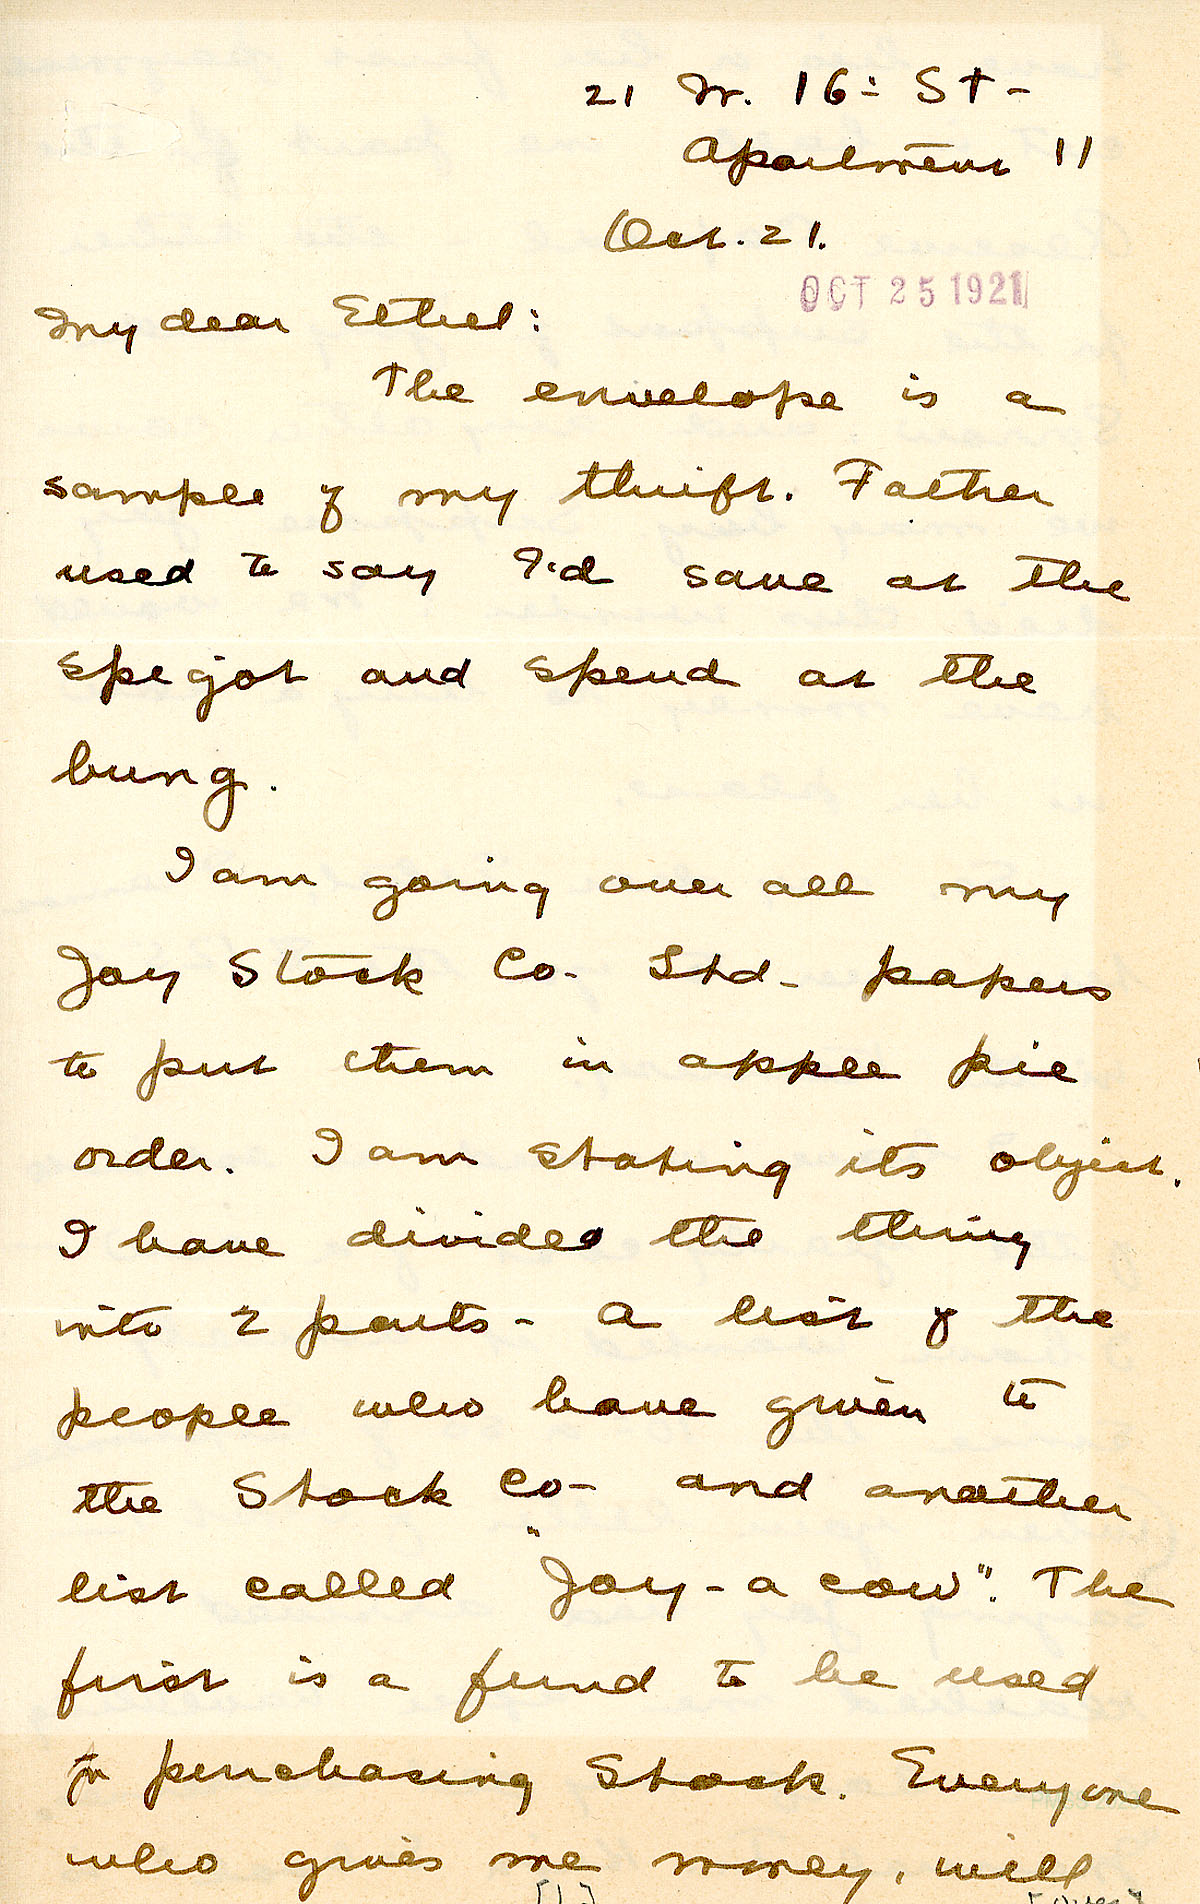 21 W. 16= St-
Apartment 11
Oct. 21.
OCT 25 1921
My dear Ethel:
The envelope is a
sample of my thrift. Father
used to say I'd save at the
spegot and spend at the
bung.
I am going over all my
Joy Stock Co- Ltd- papers
to put them in apple pie
order. I am stating its object.
I have divided the thing
into 2 parts- a list of the
people who have given to
the Stock Co- and another
list called "Joy-a cow". The
first is a fund to be used
for purchasing Stock. Everyone
who gives me money, will
[1.] [over]